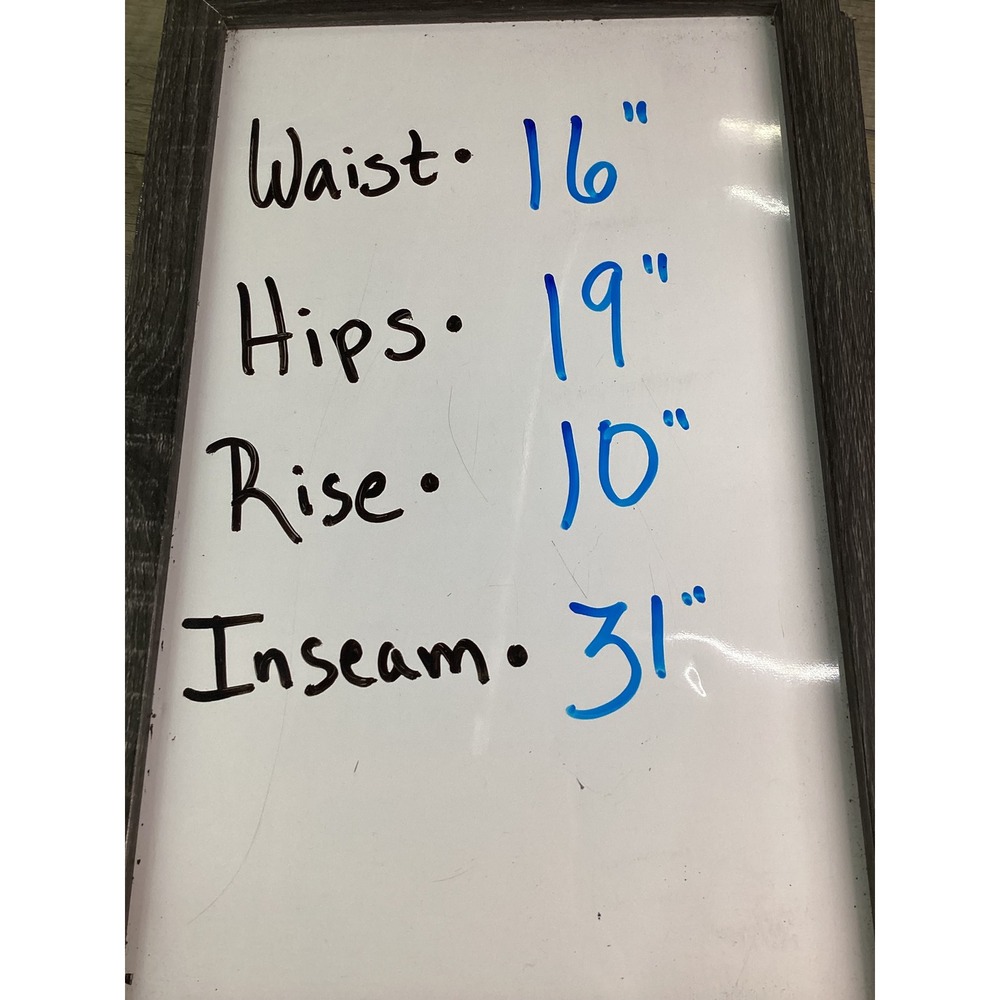 Waist• 16"
Hips• 19"
Rise• 10"
Inseam• 31"